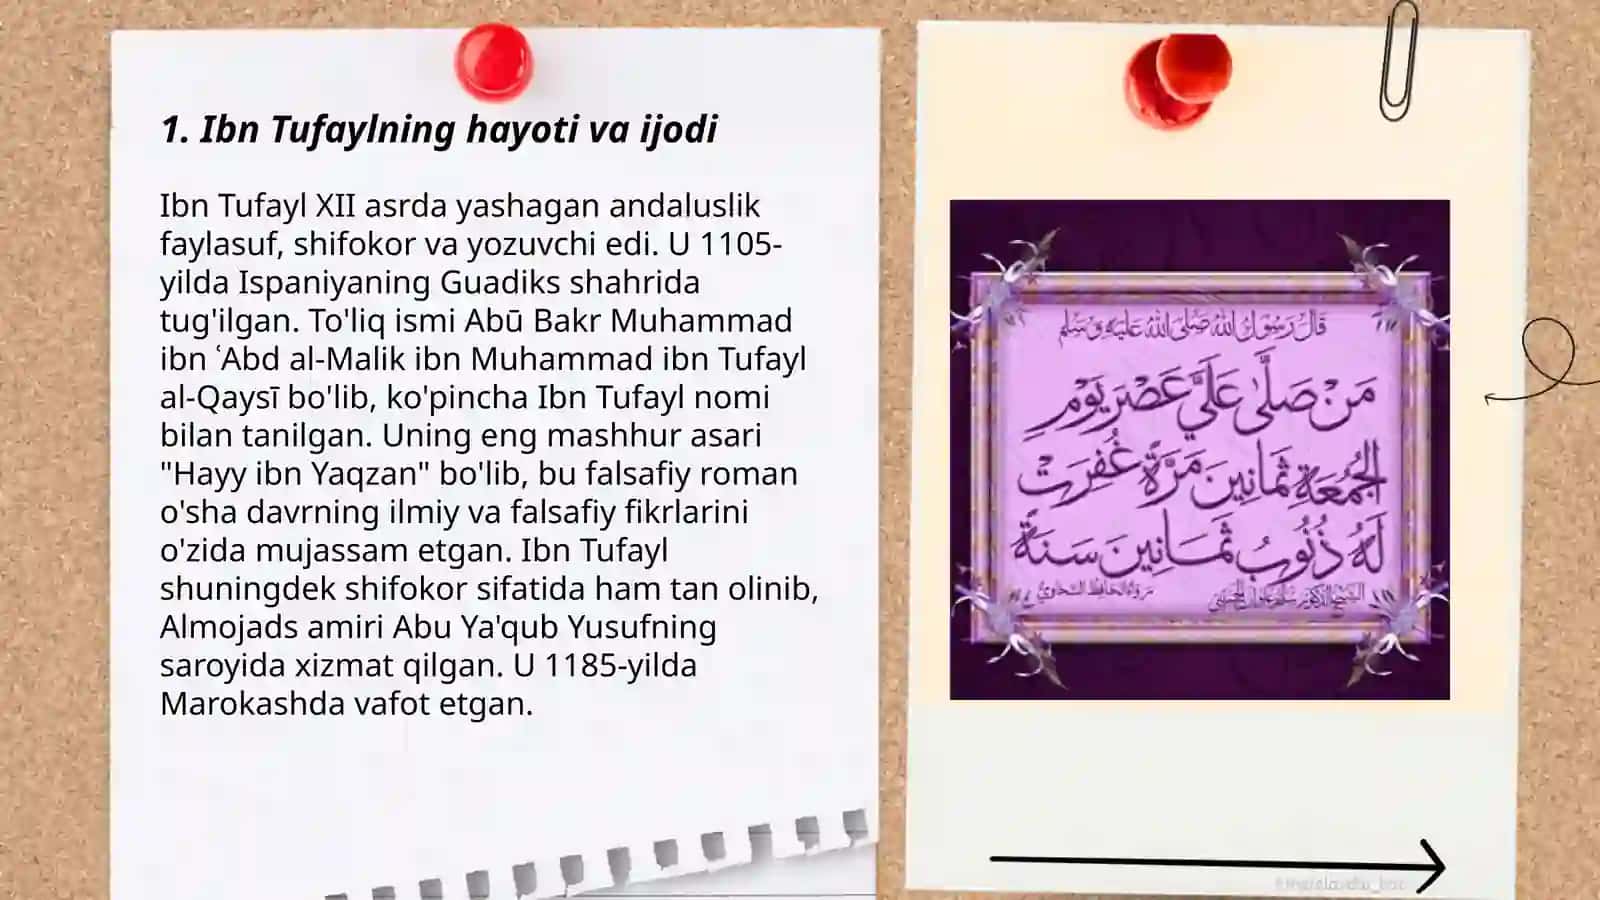 1. Ibn Tufaylning hayoti va ijodi
Ibn Tufayl XII asrda yashagan andaluslik
faylasuf, shifokor va yozuvchi edi. U 1105-
yilda Ispaniyaning Guadiks shahrida
tug'ilgan. To'liq ismi Abū Bakr Muhammad
ibn ʿAbd al-Malik ibn Muhammad ibn Tufayl
al-Qaysī bo'lib, ko'pincha Ibn Tufayl nomi
bilan tanilgan. Uning eng mashhur asari
"Hayy ibn Yaqzan" bo'lib, bu falsafiy roman
o'sha davrning ilmiy va falsafiy fikrlarini
o'zida mujassam etgan. Ibn Tufayl
shuningdek shifokor sifatida ham tan olinib,
Almojads amiri Abu Ya'qub Yusufning
saroyida xizmat qilgan. U 1185-yilda
Marokashda vafot etgan.
قَالَ رَسُولُ اللهِ صَلَّى اللهُ عَلَيْهِ وَسَلَّم
مَنْ صَلَّى عَلَيَّ عَصْرَ يَوْمِ
الْجُمُعَةِ ثَمَانِينَ مَرَّةً غُفِرَتْ
لَهُ ذُنُوبُ ثَمَانِينَ سَنَةً
رواه الحافظ السخاوي